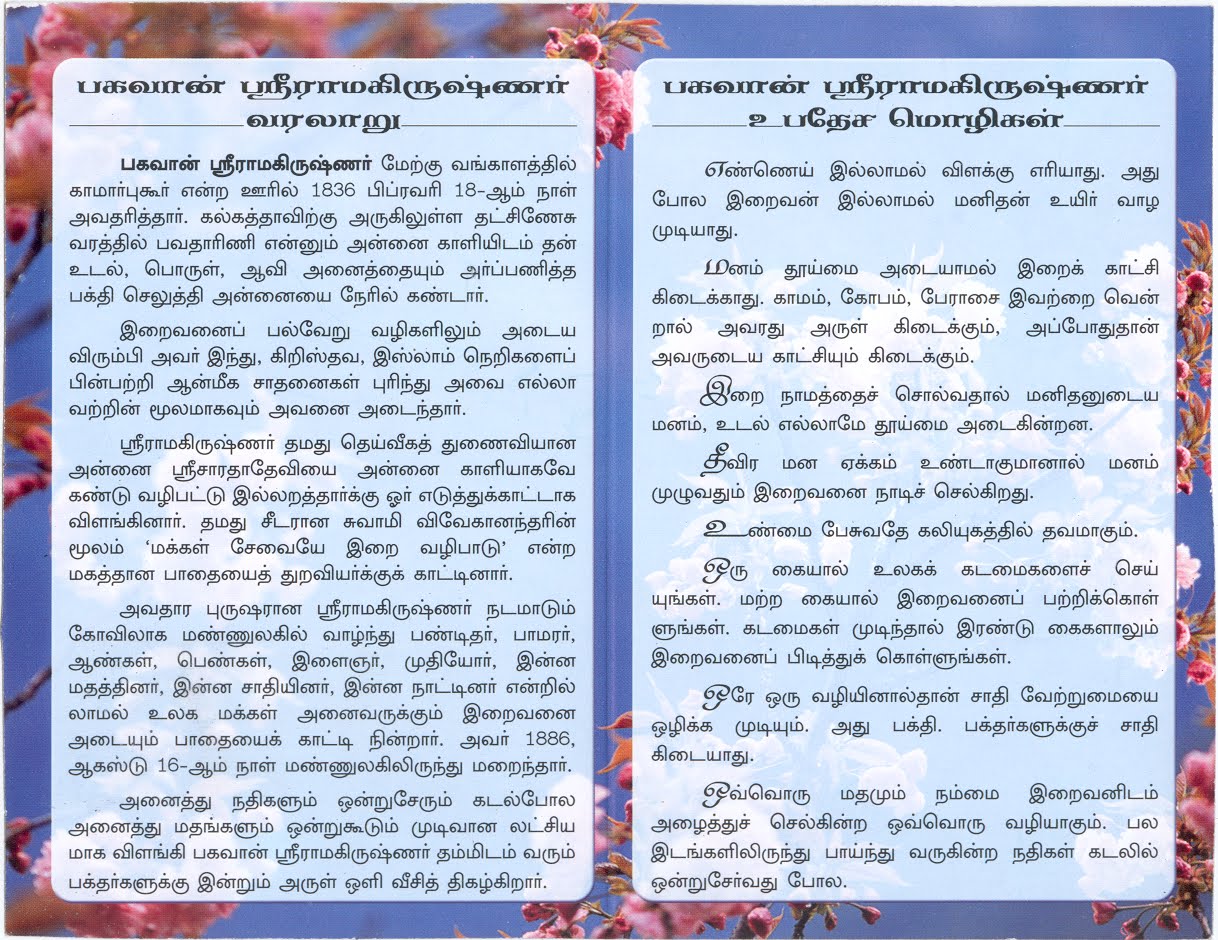 பகவான் ஸ்ரீராமகிருஷ்ணர்
வரலாறு
பகவான் ஸ்ரீராமகிருஷ்ணர் மேற்கு வங்காளத்தில்
காமார்புகூர் என்ற ஊரில் 1836 பிப்ரவரி 18-ஆம் நாள்
அவதரித்தார். கல்கத்தாவிற்கு அருகிலுள்ள தட்சிணேசு
வரத்தில் பவதாரிணி என்னும் அன்னை காளியிடம் தன்
உடல், பொருள், ஆவி அனைத்தையும் அர்ப்பணித்த
பக்தி செலுத்தி அன்னையை நேரில் கண்டார்.
இறைவனைப் பல்வேறு வழிகளிலும் அடைய
விரும்பி அவர் இந்து, கிறிஸ்தவ, இஸ்லாம் நெறிகளைப்
பின்பற்றி ஆன்மீக சாதனைகள் புரிந்து அவை எல்லா
வற்றின் மூலமாகவும் அவனை அடைந்தார்.
ஸ்ரீராமகிருஷ்ணர் தமது தெய்வீகத் துணைவியான
அன்னை ஸ்ரீசாரதாதேவியை அன்னை காளியாகவே
கண்டு வழிபட்டு இல்லறத்தார்க்கு ஓர் எடுத்துக்காட்டாக
விளங்கினார். தமது சீடரான சுவாமி விவேகானந்தரின்
மூலம் ‘மக்கள் சேவையே இறை வழிபாடு’ என்ற
மகத்தான பாதையைத் துறவியர்க்குக் காட்டினார்.
அவதார புருஷரான ஸ்ரீராமகிருஷ்ணர் நடமாடும்
கோவிலாக மண்ணுலகில் வாழ்ந்து பண்டிதர், பாமரர்,
ஆண்கள், பெண்கள், இளைஞர், முதியோர், இன்ன
மதத்தினர், இன்ன சாதியினர், இன்ன நாட்டினர் என்றில்
லாமல் உலக மக்கள் அனைவருக்கும் இறைவனை
அடையும் பாதையைக் காட்டி நின்றார். அவர் 1886,
ஆகஸ்டு 16-ஆம் நாள் மண்ணுலகிலிருந்து மறைந்தார்.
அனைத்து நதிகளும் ஒன்றுசேரும் கடல்போல
அனைத்து மதங்களும் ஒன்றுகூடும் முடிவான லட்சிய
மாக விளங்கி பகவான் ஸ்ரீராமகிருஷ்ணர் தம்மிடம் வரும்
பக்தர்களுக்கு இன்றும் அருள் ஒளி வீசித் திகழ்கிறார்.
பகவான் ஸ்ரீராமகிருஷ்ணர்
உபதேச மொழிகள்
எண்ணெய் இல்லாமல் விளக்கு எரியாது. அது
போல இறைவன் இல்லாமல் மனிதன் உயிர் வாழ
முடியாது.
மனம் தூய்மை அடையாமல் இறைக் காட்சி
கிடைக்காது. காமம், கோபம், பேராசை இவற்றை வென்
றால் அவரது அருள் கிடைக்கும், அப்போதுதான்
அவருடைய காட்சியும் கிடைக்கும்.
இறை நாமத்தைச் சொல்வதால் மனிதனுடைய
மனம், உடல் எல்லாமே தூய்மை அடைகின்றன.
தீவிர மன ஏக்கம் உண்டாகுமானால் மனம்
முழுவதும் இறைவனை நாடிச் செல்கிறது.
உண்மை பேசுவதே கலியுகத்தில் தவமாகும்.
ஒரு கையால் உலகக் கடமைகளைச் செய்
யுங்கள். மற்ற கையால் இறைவனைப் பற்றிக்கொள்
ளுங்கள். கடமைகள் முடிந்தால் இரண்டு கைகளாலும்
இறைவனைப் பிடித்துக் கொள்ளுங்கள்.
ஒரே ஒரு வழியினால்தான் சாதி வேற்றுமையை
ஒழிக்க முடியும். அது பக்தி. பக்தர்களுக்குச் சாதி
கிடையாது.
ஒவ்வொரு மதமும் நம்மை இறைவனிடம்
அழைத்துச் செல்கின்ற ஒவ்வொரு வழியாகும். பல
இடங்களிலிருந்து பாய்ந்து வருகின்ற நதிகள் கடலில்
ஒன்றுசேர்வது போல.